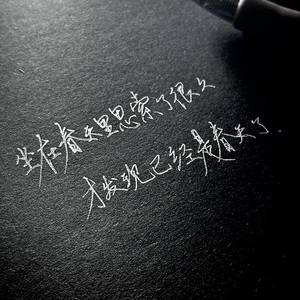 坐在春天里思索了很久
才发现已经是春天了.